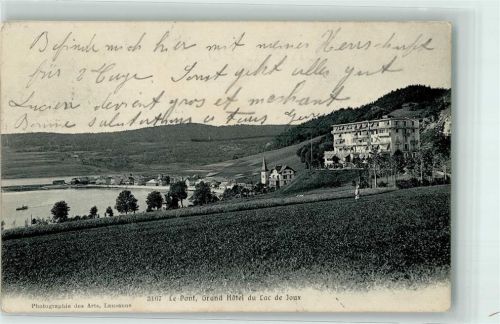 Befinde mich hier mit meiner Herrschaft
für 2 Tage, Sonst geht alles gut
Lucien devient gros et méchant
Bonne salutations à
3167 Le Pont, Grand Hôtel du Lac de Joux
Photographie des Arts, Lausanne